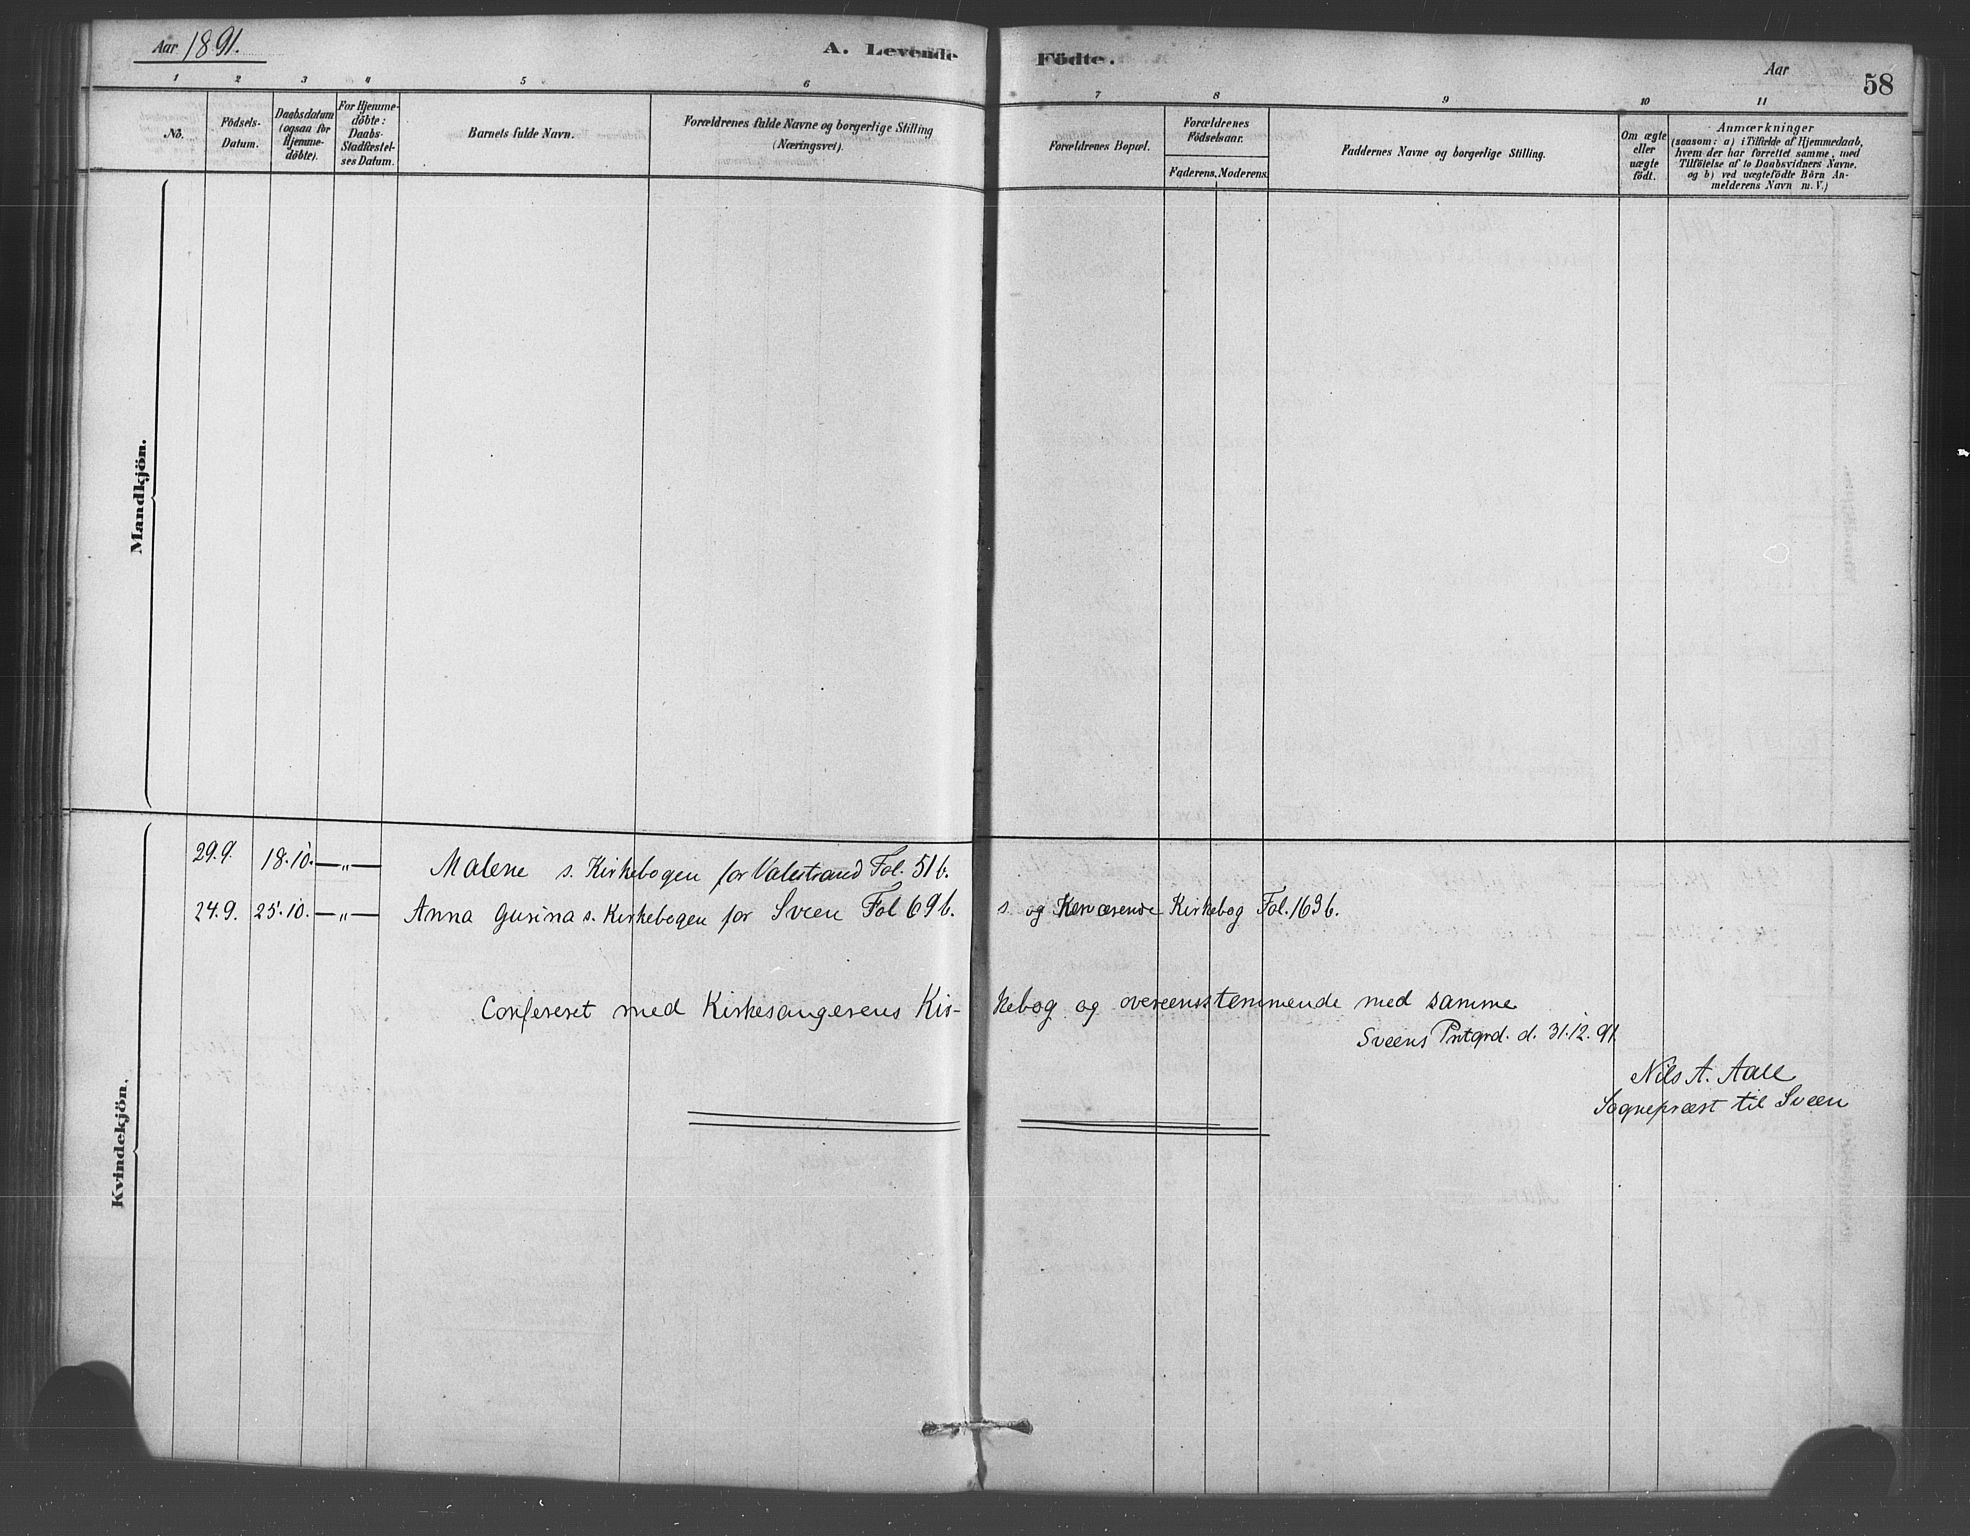 Aar 1891.
A. Levende Födte.
Aar
58
1 2 3 4 5 6 7 8 9 10 11
No.
Födsels-
Datum.
Daabsdatum
(ogsaa for
Hjemme-
döbte).
For Hjemme-
döbte:
Daabs-
Stadfæstel-
ses Datum.
Barnets fulde Navn.
Forældrenes fulde Navne og borgerlige Stilling
(Næringsvei).
Forældrenes Bopæl.
Forældrenes
Födselsaar.
Faderens. Moderens.
Faddernes Navne og borgerlige Stilling.
Om ægte
eller
uægte
födt.
Anmærkninger
(saasom: a) i Tilfælde af Hjemmedaab,
hvem der har forrettet samme, med
Tilföielse af to Daabsvidners Navne.
og b) ved uægtefödte Börn An-
melderens Navn m. V.)
Mandkjön.
Kvindekjön.
29.9. 18.10. — „ — Malene s. Kirkebogen for Valestrand Fol. 51 b.
24.9. 25.10. — „ — Anna Gurina s. Kirkebogen for Sveen Fol 69 b. s. og Kerværende Kirkebog Fol. 163 b.
Confereret med Kirkesangerens Kir- kebog og overeensstemmende med samme
Sveens Prstgrd. d. 31.12.91
Nils A. Aall
Sognepræst til Sveen